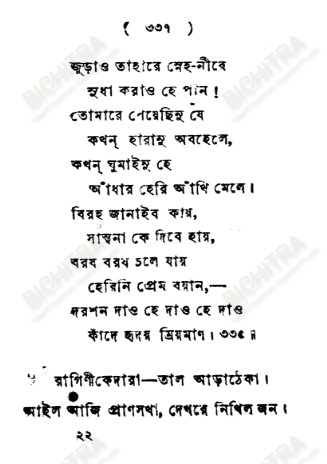 ( ৩৩৭ )
জূড়াও তাহারে স্নেহ-নীরে
সুধা করাও হে পান !
তোমারে পেয়েছিনু যে
কখন্ হারানু অবহেলে,
কখন্ ঘুমাইনু হে
আঁধার হেরি আঁখি মেলে ।
বিরহ জানাইব কায়,
সান্ত্বনা কে দিবে হায়,
বরষ বরষ চলে যায়
হেরিনি প্রেম বয়ান,—
দরশন দাও হে দাও হে দাও
কাঁদে হৃদয় ম্রিয়মাণ । ৩৩৫ ॥
রাগিণীকেদারা—তাল আড়াঠেকা ।
আইল আজি প্রাণসখা, দেখরে নিখিল জন ।
২২
BICHITRA